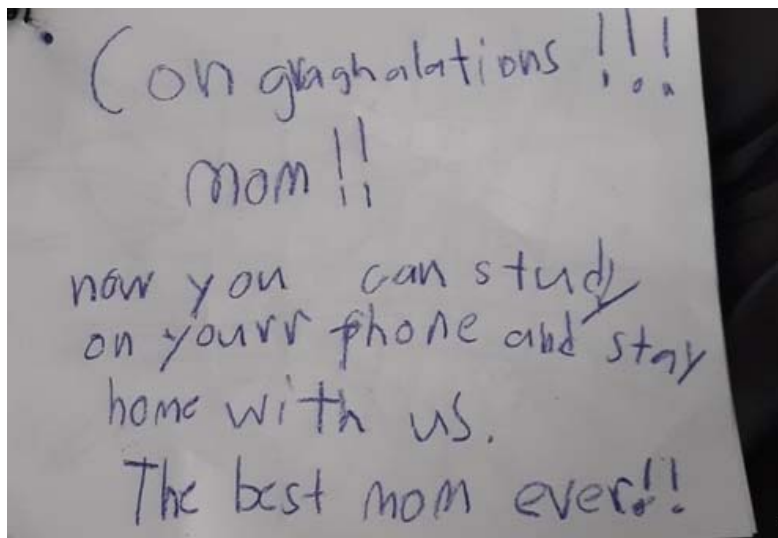 Congraghalations !!!
mom !!
now you can study
on yourr phone and stay
home with us.
The best mom ever!!